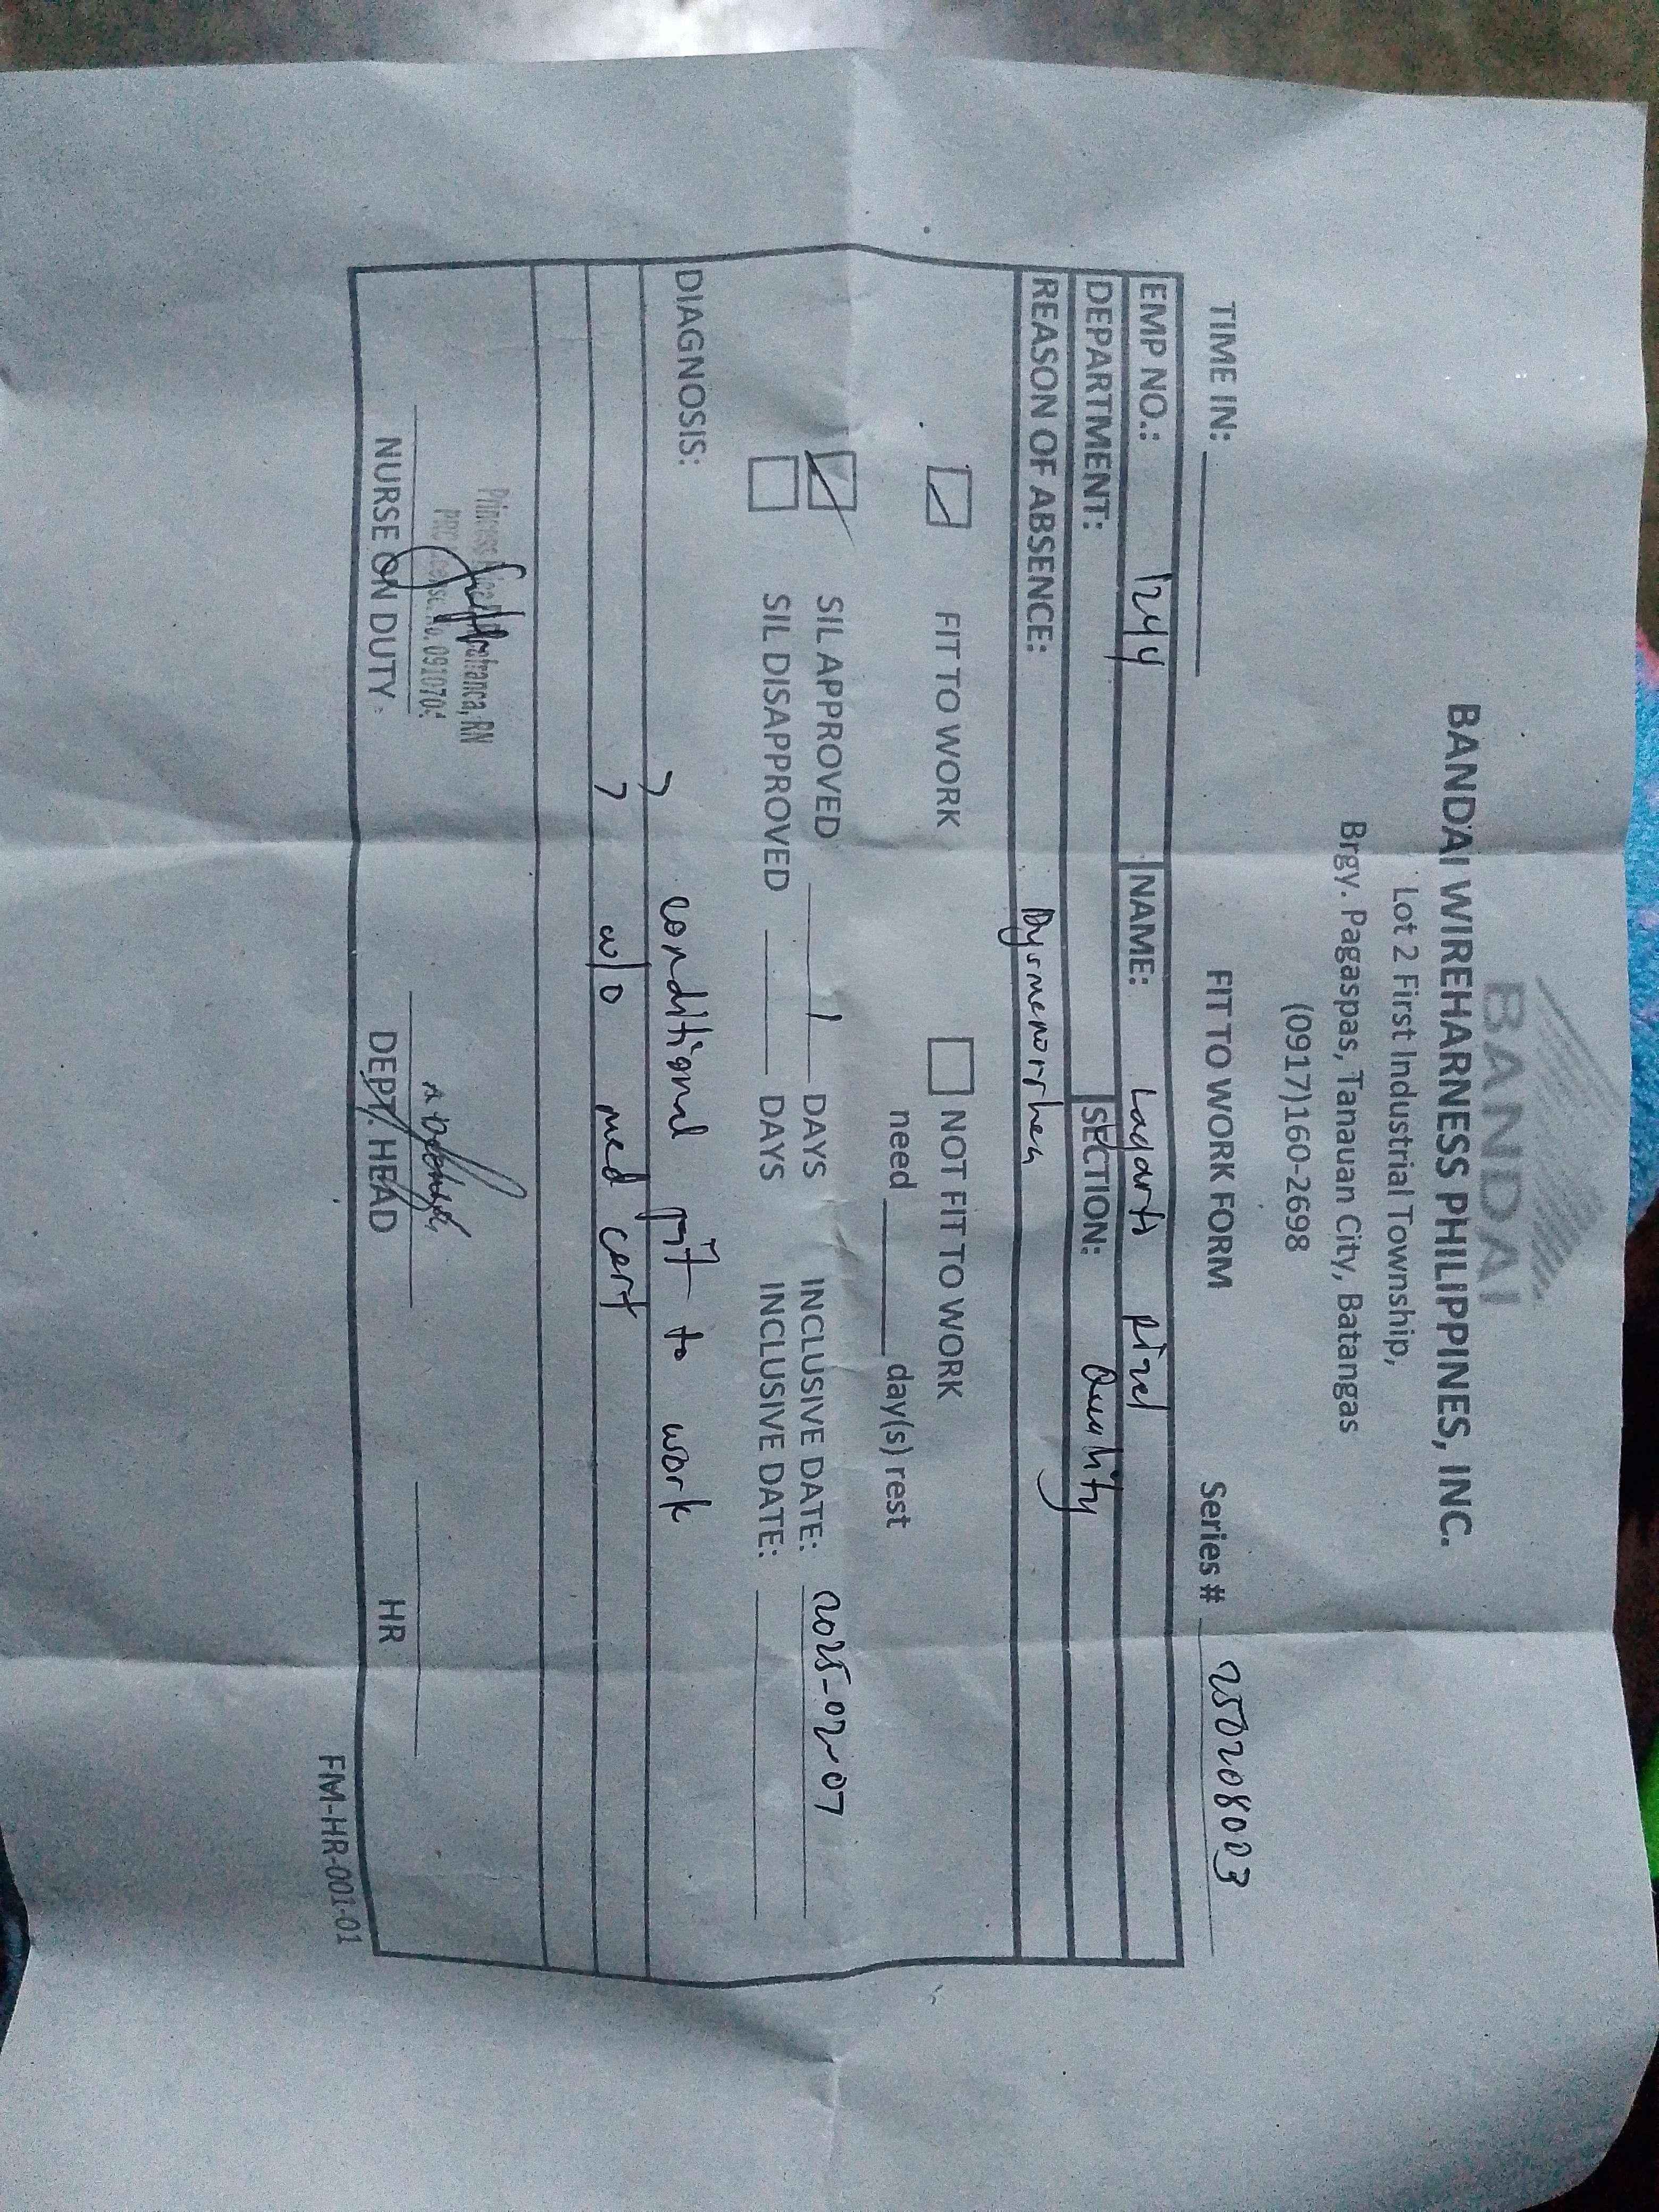 BANDAI
BANDAI WIREHARNESS PHILIPPINES, INC.
Lot 2 First Industrial Township,
Brgy. Pagaspas, Tanauan City, Batangas
(0917)160-2698
TIME IN: FIT TO WORK FORM Series # 250208003
EMP NO.: 1244 NAME:
DEPARTMENT: SECTION: Quality
REASON OF ABSENCE: Dysmenorrhea
FIT TO WORK NOT FIT TO WORK
need day(s) rest
SIL APPROVED 1 DAYS INCLUSIVE DATE: 2025-02-07
SIL DISAPPROVED DAYS INCLUSIVE DATE:
DIAGNOSIS:
conditional fit to work
w/o med cert
Princess RN
No. 091070
NURSE ON DUTY DEPT. HEAD HR
FM-HR-001-01